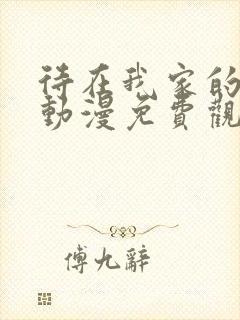 待在我家的
動漫免費觀
傅九辭